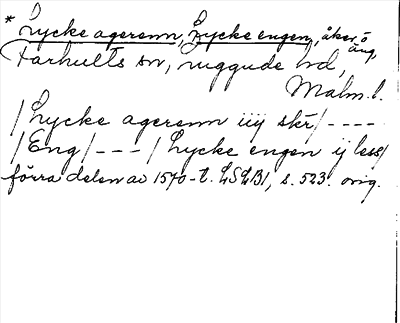 * Lycke agerenn, Lycke engen, åker o äng,
Farhults sn, Luggude hd,
Malm. l.
/Lycke agerenn iiij skr/ ----
/Eng/ --- /Lycke engen ij less/
förra delen av 1570-t. LSLB1, s. 523. orig.